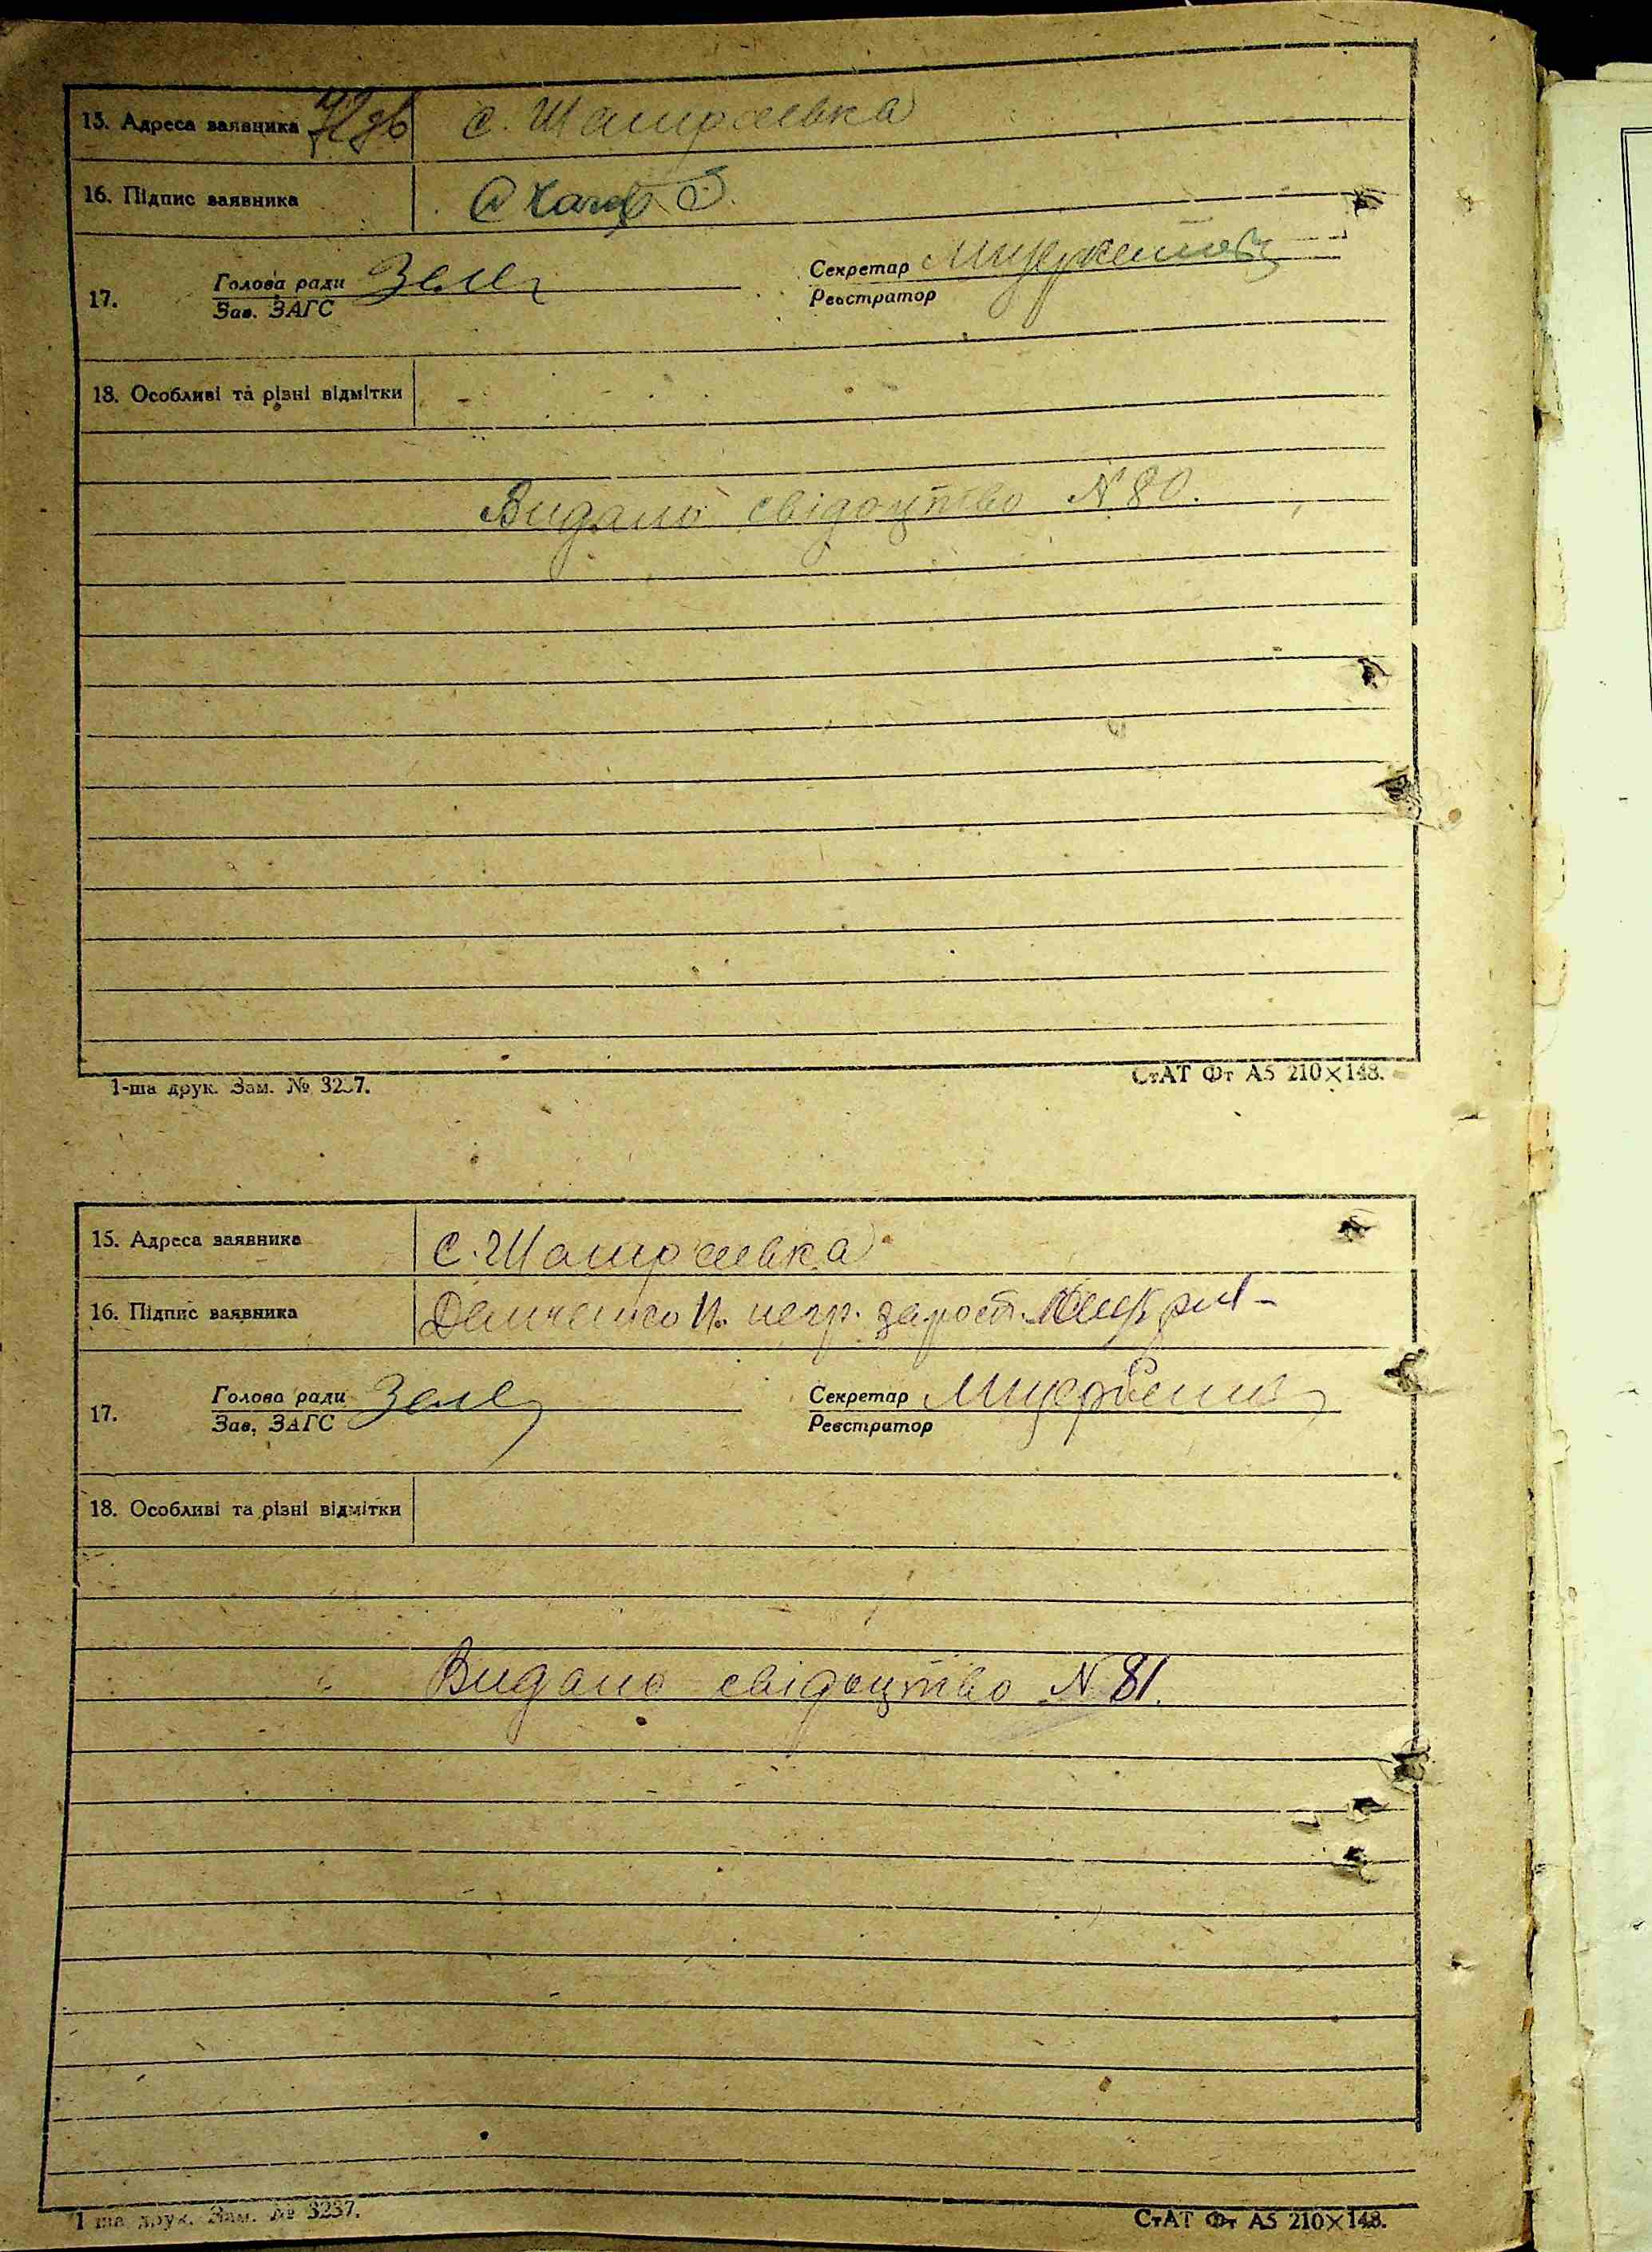 15. Адреса заявника с. Шамраєвка
16. Підпис заявника
Голова ради Секретар
17.
Зав. ЗАГС Реєстратор
18. Особливі та різні відмітки
Видано свідоцтво N 80.
1-ша друк. Зам. № 32 7.
СтАТ Фт А5 210×148.
15. Адреса заявника с. Шамраєвка
16. Підпис заявника Демченко негр.
Голова ради Секретар
17.
Зав. ЗАГС Реєстратор
18. Особливі та різні відмітки
Видано свідоцтво N 81.
1 ша друк. Зам. № 3237.
СтАТ Фт А5 210×148.